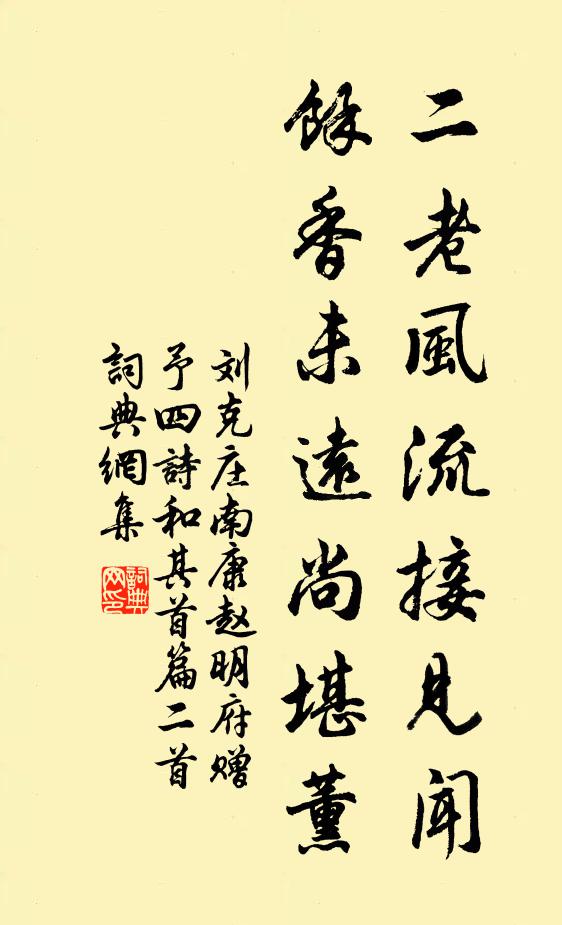 二老風流接見闻
馀香未遠尚堪薰
刘克庄南康赵明府赠
予四詩和其首篇二首
詞典網集
詞典網印